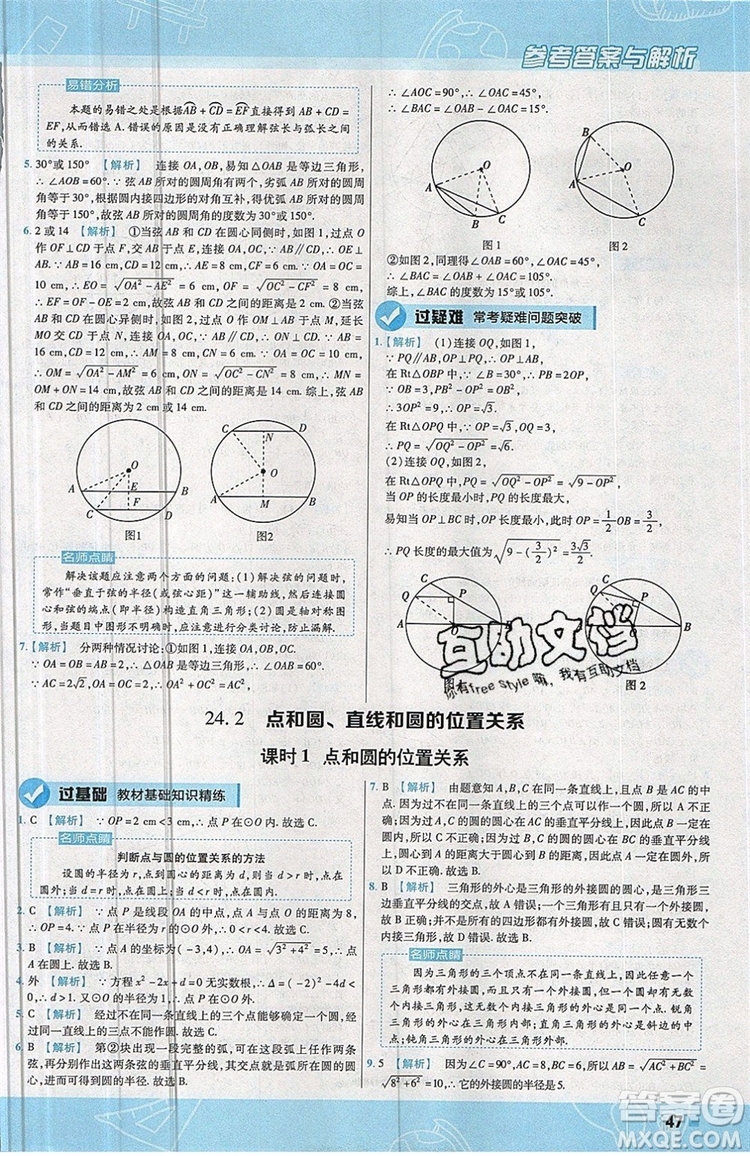 参考答案与解析
易错分析
本题的易错之处是根据AB+CD=EF直接得出AB+CD=
EF,从而错选A.错误的原因是没有正确理解弦长与弧长之间
的关系.
5. 30°或150° 【解析】 连接OA,OB,易知△OAB是等边三角形,
∴∠AOB=60°.∵弦AB所对的圆周角有两个,劣弧AB所对的圆周
角等于30°,根据圆内接四边形的对角互补,得优弧AB所对的圆周
角等于150°,故弦AB所对的圆周角的度数为30°或150°.
6. 2或14 【解析】 ①当弦AB和CD在圆心同侧时,如图1,过点O
作OF⊥CD于点F,交AB于点E,连接OA,OC,∵AB∥CD,∴OE⊥
AB.∵AB=16 cm,CD=12 cm,∴AE=8 cm,CF=6 cm.∵OA=OC=
10 cm,∴EO=√(OA²-AE²)=6 cm,OF=√(OC²-CF²)=8 cm,
∴EF=OF-OE=2 cm.故弦AB和CD之间的距离是2 cm;②当弦
AB和CD在圆心异侧时,如图2,过点O作OM⊥AB于点M,延长
MO交CD于点N,连接OA,OC,∵AB∥CD,∴ON⊥CD.∵AB=
16 cm,CD=12 cm,∴AM=8 cm,CN=6 cm.∵OA=OC=10 cm,
∴OM=√(OA²-AM²)=6 cm,ON=√(OC²-CN²)=8 cm,
∴MN=OM+ON=14 cm.故弦AB和CD之间的距离是14 cm.综上,弦
AB和CD之间的距离为2 cm或14 cm.
O
A
E
B
C
F
D
图1
C
N
D
O
A
M
B
图2
名师点睛
解决该题应注意两个方面的问题:(1)解决弦的问题时,
常作“垂直于弦的半径(或弦心距)”这一辅助线,然后连接圆
心和弦的端点(即半径)构造直角三角形;(2)圆是轴对称图
形,当题目中图形不明确时,应注意进行分类讨论,防止漏解.
7. 【解析】 分两种情况讨论:①如图1,连接OA,OB,OC.
∵AC=2√2,OA=OC=2,∴OA²+OC²=AC²,
∴∠AOC=90°,∴∠OAC=45°,
∴∠BAC=∠OAB-∠OAC=15°.
O
A
B
C
图1
B
O
A
C
图2
②如图2,同理得∠OAC=45°,∠OAB=60°,
∴∠BAC=∠OAB+∠OAC=105°.
综上,∠BAC的度数是15°或105°.
过疑难 常考疑难问题突破
1. 【解析】 (1)连接OQ,如图1.
∵PQ∥AB,OP⊥PQ,∴OP⊥AB.
在Rt△OBP中,∠B=30°,∴PB=2OP.
∵OB=3,∴PB²-OP²=OB²,
∴3OP²=9,∴OP=√3.
在Rt△OPQ中,∵OQ=3,OP=√3,
∴PQ=√(OQ²-OP²)=√6.
(2)连接OQ,如图2.
在Rt△OPQ中,PQ=√(OQ²-OP²)=√(9-OP²),
当OP的长度最小时,PQ的长度最大,
易知当OP⊥BC时,OP的长度最小,此时OP=1/2 OB=3/2,
∴PQ长的最大值为√(9-(3/2)²)=3√3/2.
C
Q
P
A
O
B
图
C
Q
P
A
O
B
图2
互助文档
你有free Style 嘛,我有互助文档
24.2 点和圆、直线和圆的位置关系
课时1 点和圆的位置关系
过基础 教材基础知识精练
1. C 【解析】 ∵OP=2 cm<3 cm,∴点P在⊙O内.故选C.
名师点睛
判断点与圆的位置关系的方法
设圆的半径为r,点到圆心的距离为d,则当d>r时,点
在圆外;当d=r时,点在圆上;当d<r时,点在圆内.
2. C 【解析】 ∵点P是线段OA的中点,点A与圆心O的距离为
6,∴点P在半径为r的⊙O内时,r>3.故选C.
3. B 【解析】 ∵点A的坐标为(-3,4),∴OA=√(3²+4²)=5,
∴点O在⊙A上.故选B.
4. 外 【解析】 ∵方程x²-2x+d=0没有实数根,∴Δ=(-2)²-
4d<0,∴d>1,∴点P在⊙O外.
5. C 【解析】 经过不在同一条直线上的三个点能够确定一个圆,
经过同一直线上的三点不能作圆.故选C.
6. B 【解析】 第②块出现一段完整的弧,可在这段弧上任作两条
弦,再分别作出这两条弦的垂直平分线,其交点就是圆心,圆心与
弧上任意一点之间的线段就是该圆的半径.故选B.
7. B 【解析】 由题意知A,C在同一条直线上,B不在这条直线
上,则过点A,B,C可确定一个圆,故①正确;因为AC的垂直平
分线经过圆心,所以圆的圆心在AC的垂直平分线上,但不一定
在圆内,故②不正确,③正确;若圆心O在BC的垂直平分线上,
则OB=OC,故④正确.故选B.
8. B 【解析】 三角形的外心是三角形的外接圆的圆心,是三边
垂直平分线的交点,故A错误;三角形一定有一个外接圆,故B
正确,C错误;并不是所有的四边形都有外接圆,如非矩形的平
行四边形没有外接圆,故D错误.故选B.
名师点睛
因为三角形的三个顶点不在同一条直线上,所以过这
三个点可以作且只可以作一个圆,即任意一个三角形都有
一个外接圆,但一个圆的内接三角形却有无数个.锐角三角
形的外心在三角形内;直角三角形的外心是斜边的中点;
钝角三角形的外心在三角形外.
9. 5 【解析】 因为∠C=90°,AC=8,BC=6,所以AB=√(AC²+BC²)=
√(8²+6²)=10,所以它的外接圆的半径是5.
47
答案圈
MXQE.COM